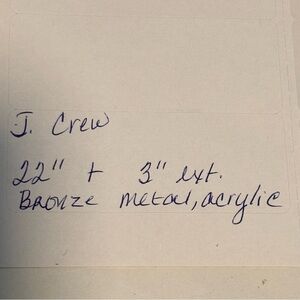 J. Crew
22" + 3" ext.
Bronze metal, acrylic